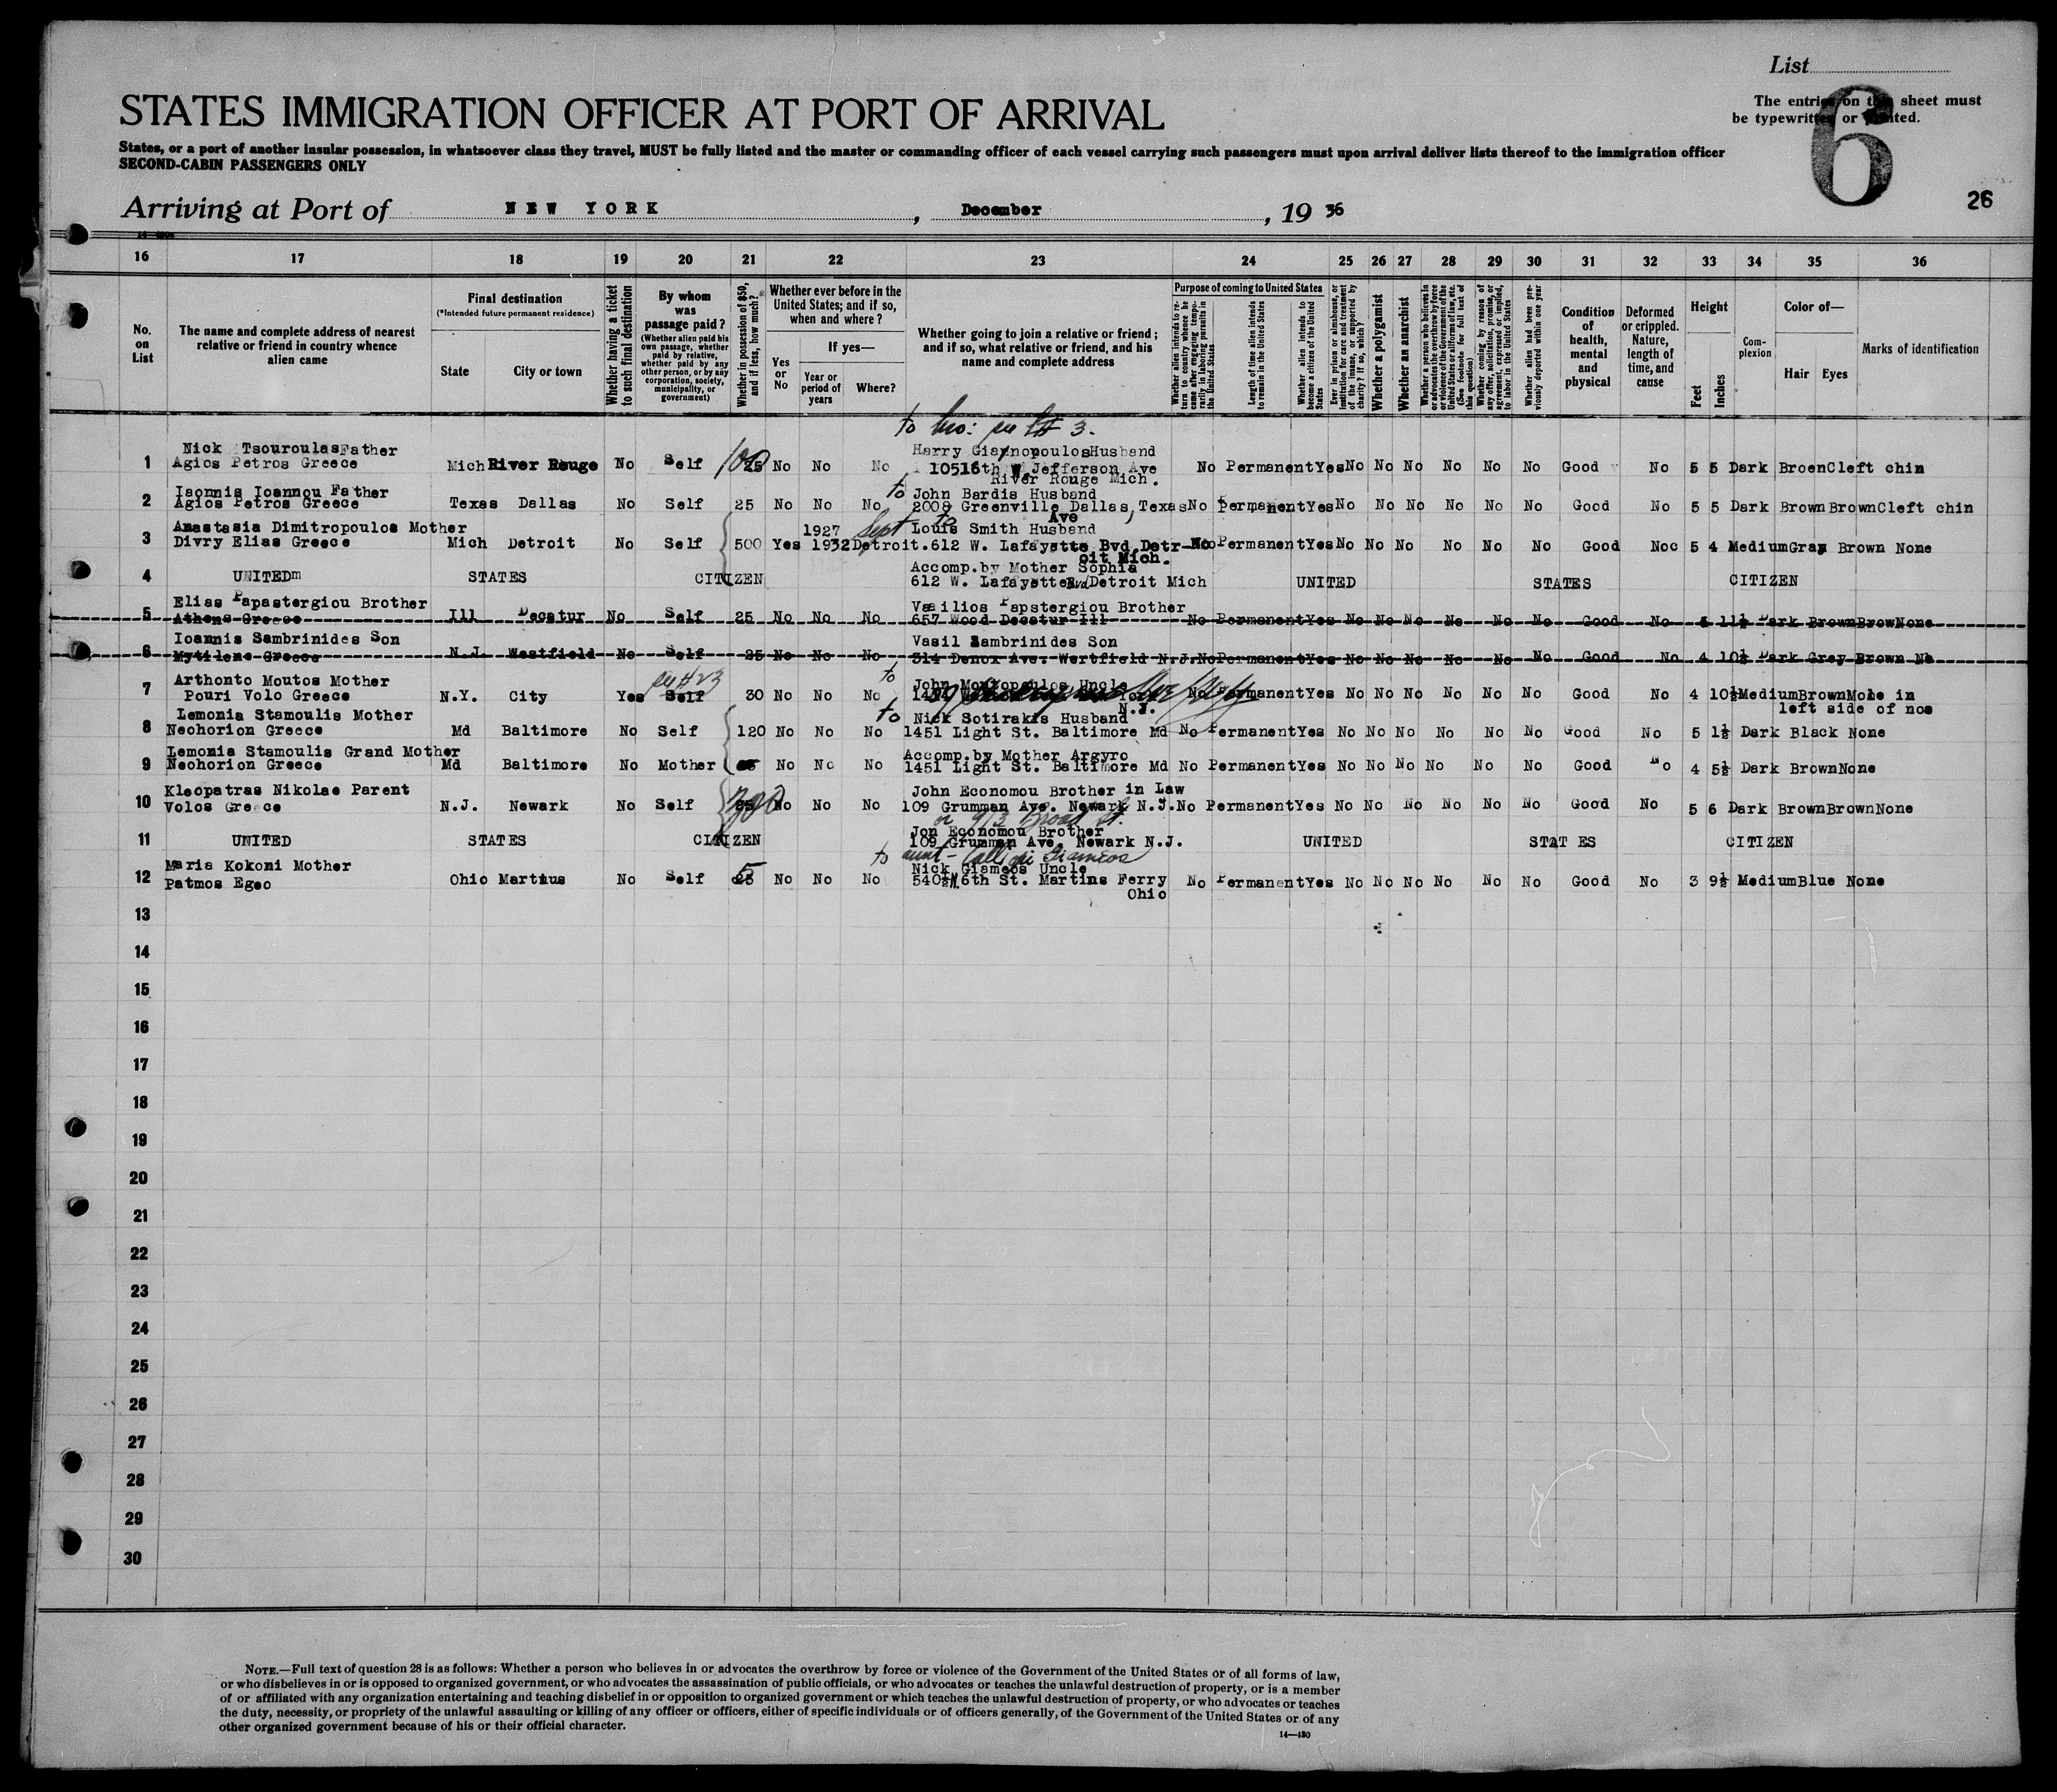 List
The entries on this sheet must
be typewritten or printed.
6
26
STATES IMMIGRATION OFFICER AT PORT OF ARRIVAL
States, or a port of another insular possession, in whatsoever class they travel, MUST be fully listed and the master or commanding officer of each vessel carrying such passengers must upon arrival deliver lists thereof to the immigration officer
SECOND-CABIN PASSENGERS ONLY
Arriving at Port of NEW YORK, December, 19 36
16 17 18 19 20 21 22 23 24 25 26 27 28 29 30 31 32 33 34 35 36
No. on List
The name and complete address of nearest relative or friend in country whence alien came
Final destination
(*Intended future permanent residence)
State
City or town
Whether having a ticket to such final destination
By whom was passage paid?
(Whether alien paid his own passage, whether paid by relative, whether paid by any other person, or by any corporation, society, municipality, or government)
Whether in possession of $50, and if less, how much?
Whether ever before in the United States; and if so, when and where?
Yes or No
If yes—
Year or period of years
Where?
Whether going to join a relative or friend; and if so, what relative or friend, and his name and complete address
Purpose of coming to United States
Whether alien intends to return to country whence he came after engaging temporarily in laboring pursuits in the United States
Length of time alien intends to remain in the United States
Whether alien intends to become a citizen of the United States
Ever in prison or almshouse, or institution for care and treatment of the insane, or supported by charity? If so, which?
Whether a polygamist
Whether an anarchist
Whether a person who believes in or advocates the overthrow by force or violence of the Government of the United States or all forms of law, etc. (See footnote for full text of this question)
Whether coming by reason of any offer, solicitation, promise, or agreement, expressed or implied, to labor in the United States
Whether alien had been previously deported within one year
Condition of health, mental and physical
Deformed or crippled. Nature, length of time, and cause
Height
Feet
Inches
Complexion
Color of—
Hair Eyes
Marks of identification
to bro:
3.
Nick Tsouroulas Father Harry Giaynopoulos Husband
1 Agios Petros Greece Mich River Rouge No Self 100 25 No No No 10516th W Jefferson Ave No Permanent Yes No No No No No No Good No 5 5 Dark Broen Cleft chin
River Rouge Mich.
Iaonnis Ioannou Father to John Bardis Husband
2 Agios Petros Greece Texas Dallas No Self 25 No No No 2008 Greenville Dallas, Texas No Permanent Yes No No No No No No Good No 5 5 Dark Brown Brown Cleft chin
Ave
Anastasia Dimitropoulos Mother 1927 Sept to Louis Smith Husband
3 Divry Elias Greece Mich Detroit No Self 500 Yes 1932 Detroit. 612 W. Lafayette Bvd Detr- No Permanent Yes No No No No No No Good Noc 5 4 Medium Gray Brown None
oit Mich.
Accomp. by Mother Sophia
4 UNITEDm STATES CITIZEN 612 W. Lafayette Bvd Detroit Mich UNITED STATES CITIZEN
Elias Papastergiou Brother Vasilios Papstergiou Brother
5 Athens Greece Ill Decatur No Self 25 No No No 657 Wood Decatur Ill No Permanent Yes No No No No No No Good No 5 11½ Dark Brown Brow None
Ioannis Sambrinides Son Vasil Sambrinides Son
6 Mytilene Greece N.J. Westfield No Self 25 No No No 314 Denox Ave. Westfield N.J. No Permanent Yes No No No No No No Good No 4 10½ Dark Grey Brown No
Arthonto Moutos Mother to John Uncle
7 Pouri Volo Greece N.Y. City Yes Self 30 No No No No Permanent Yes No No No No No No Good No 4 10½ Medium Brown Mole in
N.Y. left side of nos
Lemonia Stamoulis Mother to Nick Sotirakis Husband
8 Neohorion Greece Md Baltimore No Self 120 No No No 1451 Light St. Baltimore Md No Permanent Yes No No No No No No Good No 5 1½ Dark Black None
Lemonia Stamoulis Grand Mother Accomp. by Mother Argyro
9 Neohorion Greece Md Baltimore No Mother No No No 1451 Light St. Baltimore Md No Permanent Yes No No No No No No Good No 4 5½ Dark Brown None
Kleopatras Nikolae Parent John Economou Brother in Law
10 Volos Greece N.J. Newark No Self No No No 109 Grumman Ave. Newark N.J. No Permanent Yes No No No No No No Good No 5 6 Dark Brown Brown None
or 973 Broad St.
Jon Economou Brother
11 UNITED STATES CITIZEN 109 Grumman Ave. Newark N.J. UNITED STAT ES CITIZEN
to aunt - Calliopi Giameos
Maria Kokoni Mother Nick Giameos Uncle
12 Patmos Egeo Ohio Martius No Self 25 No No No 540½ N. 6th St. Martins Ferry No Permanent Yes No No No No No No Good No 3 9½ Medium Blue None
Ohio
13
14
15
16
17
18
19
20
21
22
23
24
25
26
27
28
29
30
NOTE.—Full text of question 28 is as follows: Whether a person who believes in or advocates the overthrow by force or violence of the Government of the United States or of all forms of law,
or who disbelieves in or is opposed to organized government, or who advocates the assassination of public officials, or who advocates or teaches the unlawful destruction of property, or is a member
of or affiliated with any organization entertaining and teaching disbelief in or opposition to organized government or which teaches the unlawful destruction of property, or who advocates or teaches
the duty, necessity, or propriety of the unlawful assaulting or killing of any officer or officers, either of specific individuals or of officers generally, of the Government of the United States or of any
other organized government because of his or their official character.
14—480